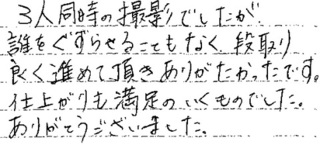 3人同時の撮影でしたが
誰をぐずらせることもなく、段取り
良く進めて頂きありがたかったです。
仕上がりも満足のいくものでした。
ありがとうございました。